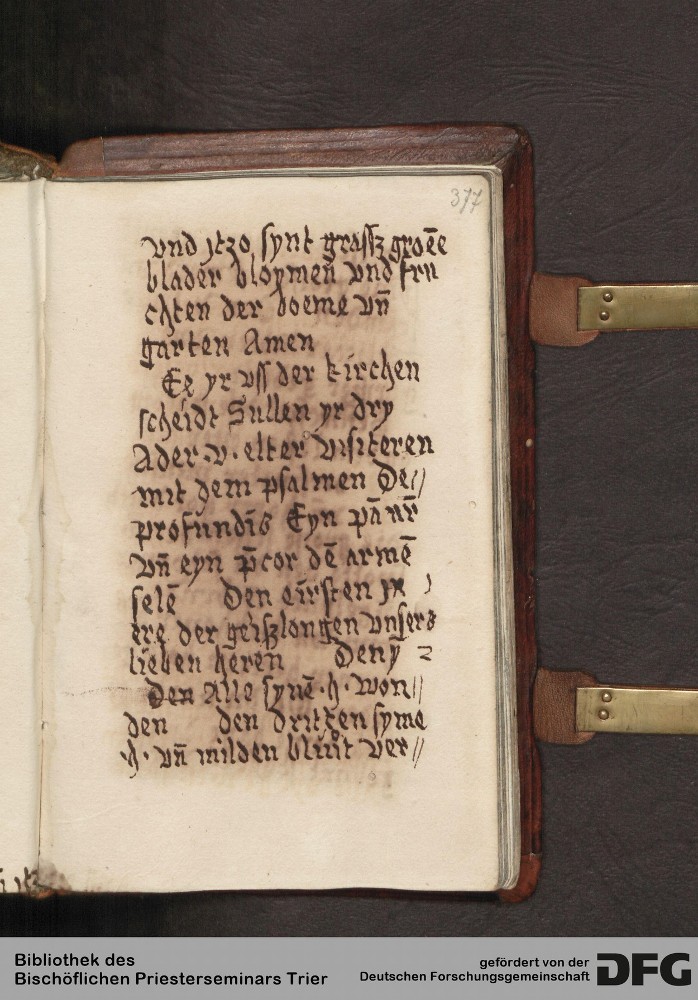 377
vnd jtzo synt grassz groēe
blader bloymen vnd fru
chten der boeme vn̄
garten Amen
Ee yr vss der kirchen
scheidt Sullen yr dry
Ader .v. elter visiteren
mit dem psalmen De//
profundis Eyn pr̄ nr̄
vn̄ eyn p̄cor dē armē
selē Den eirsten jn
ere der geiszlongen vnsers
lieben heren Den ij
Den Alle synē .h. won//
den den dritten syme
.h. vn̄ milden bluit ver//
Bibliothek des
Bischöflichen Priesterseminars Trier
gefördert von der
Deutschen Forschungsgemeinschaft
DFG